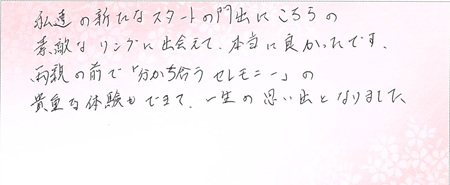 私達の新たなスタートの門出にこちらの
素敵なリングに出会えて、本当に良かったです。
両親の前で「分かち合うセレモニー」の
貴重な体験もできて、一生の思い出となりました